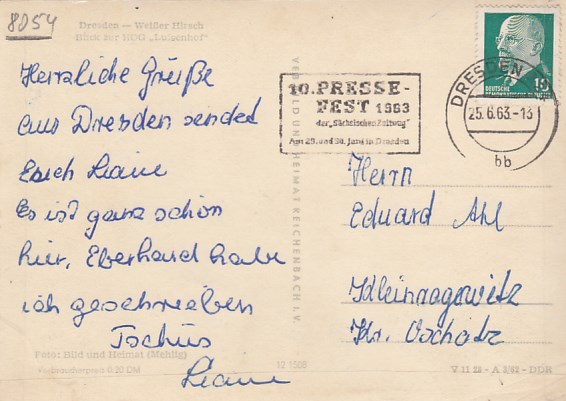 8054
Dresden — Weißer Hirsch
Blick zur HOG „Luisenhof"
Herzliche Grüße
aus Dresden sendet
Euch Liane
Es ist ganz schön
hier, Eberhard habe
ich geschrieben
Tschüs
Liane
Foto: Bild und Heimat (Mehlig)
Verbraucherpreis 0,20 DM
12 1508
VEB BILD UND HEIMAT REICHENBACH I. V.
10. PRESSE-
FEST 1963
der „Sächsischen Zeitung"
Am 29. und 30. Juni in Dresden
DRESDEN
25.6.63.-13
bb
10
DEUTSCHE
DEMOKRATISCHE REPUBLIK
Herrn
Eduard Ahl
Kleinragewitz
Kr. Oschatz
V 11 28 - A 3/63 - DDR